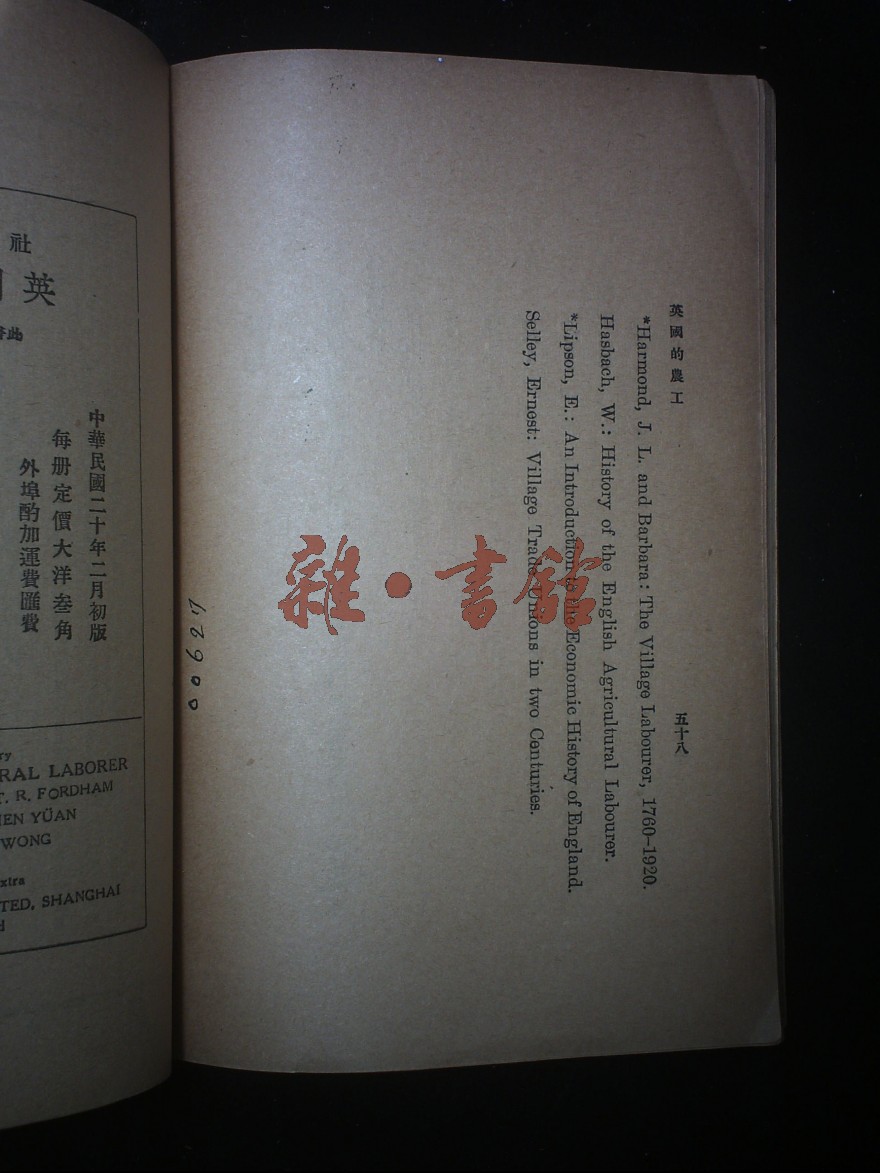 英國的農工
五十八
*Harmond, J. L. and Barbara: The Village Labourer, 1760–1920.
Hasbach, W.: History of the English Agricultural Labourer.
*Lipson, E.: An Introduction to the Economic History of England.
Selley, Ernest: Village Trade Unions in two Centuries.
雜·書館
社
英
此書
中華民國二十年二月初版
每册定價大洋叁角
外埠酌加運費匯費
RAL LABORER
T. R. FORDHAM
HEN YÜAN
WONG
xtra
TED, SHANGHAI